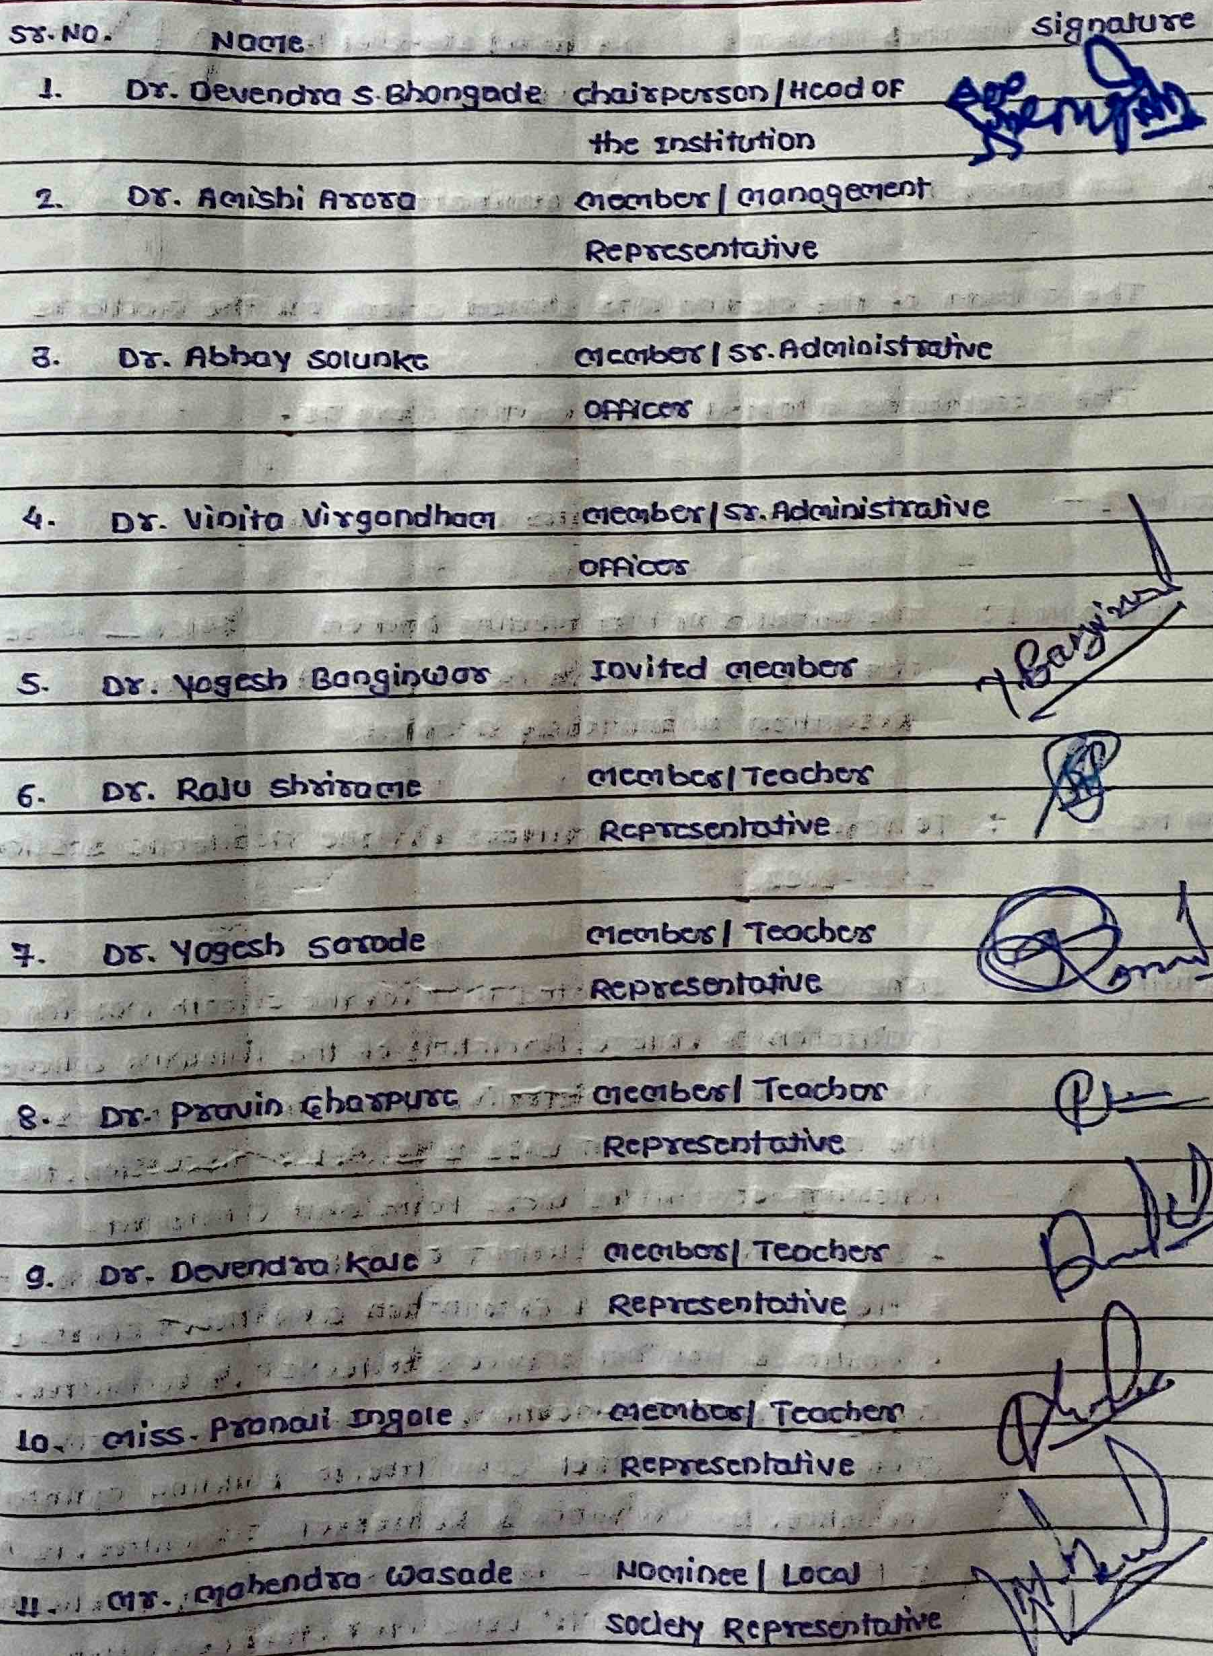 Sr. No. Name Signature
1. Dr. Devendra S. Bhongade Chairperson / Head of
the Institution
2. Dr. Amishi Arora Member / Management
Representative
3. Dr. Abhay Solunke Member / Sr. Administrative
Officer
4. Dr. Vinita Virgandham Member / Sr. Administrative
Officer
5. Dr. Yogesh Banginwar Invited Member
6. Dr. Raju Shrirame Member / Teacher
Representative
7. Dr. Yogesh Sarode Member / Teacher
Representative
8. Dr. Pravin Gharpure Member / Teacher
Representative
9. Dr. Devendra Kale Member / Teacher
Representative
10. Miss. Pranali Ingole Member / Teacher
Representative
11. Mr. Mahendra Wasade Nominee / Local
Society Representative